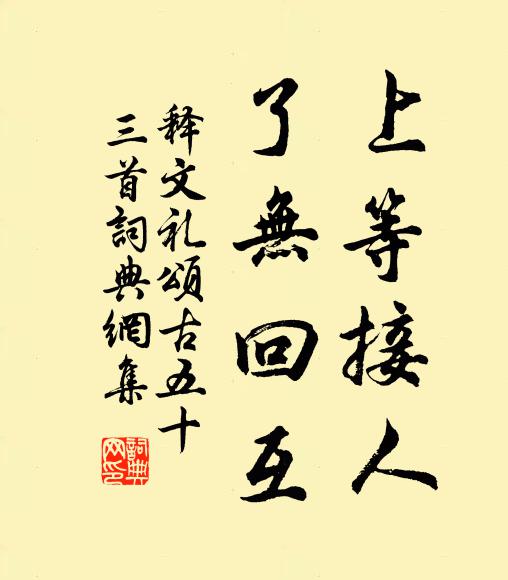 上等接人
了無回互
释文礼頌古五十
三首詞典網集
詞典
网印